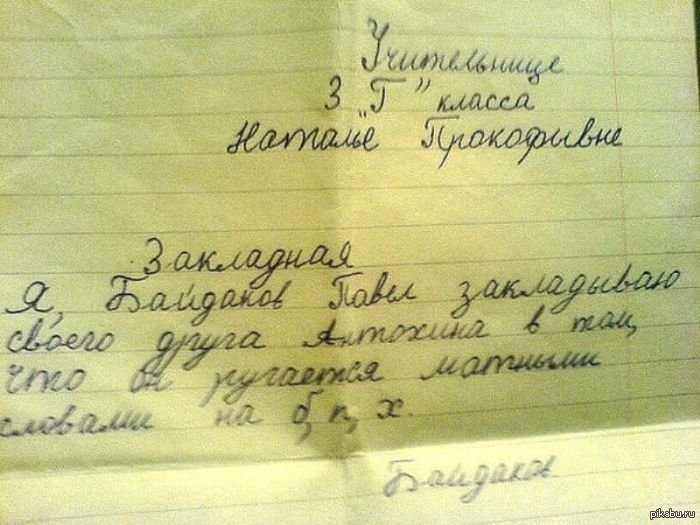 Учительнице
3 "Г" класса
Наталье Прокофывне
Закладная
Я, Байдаков Павел закладываю
своего друга Антохина в том,
что он ругается матными
словами на б, п, х.
Байдаков
pikabu.ru